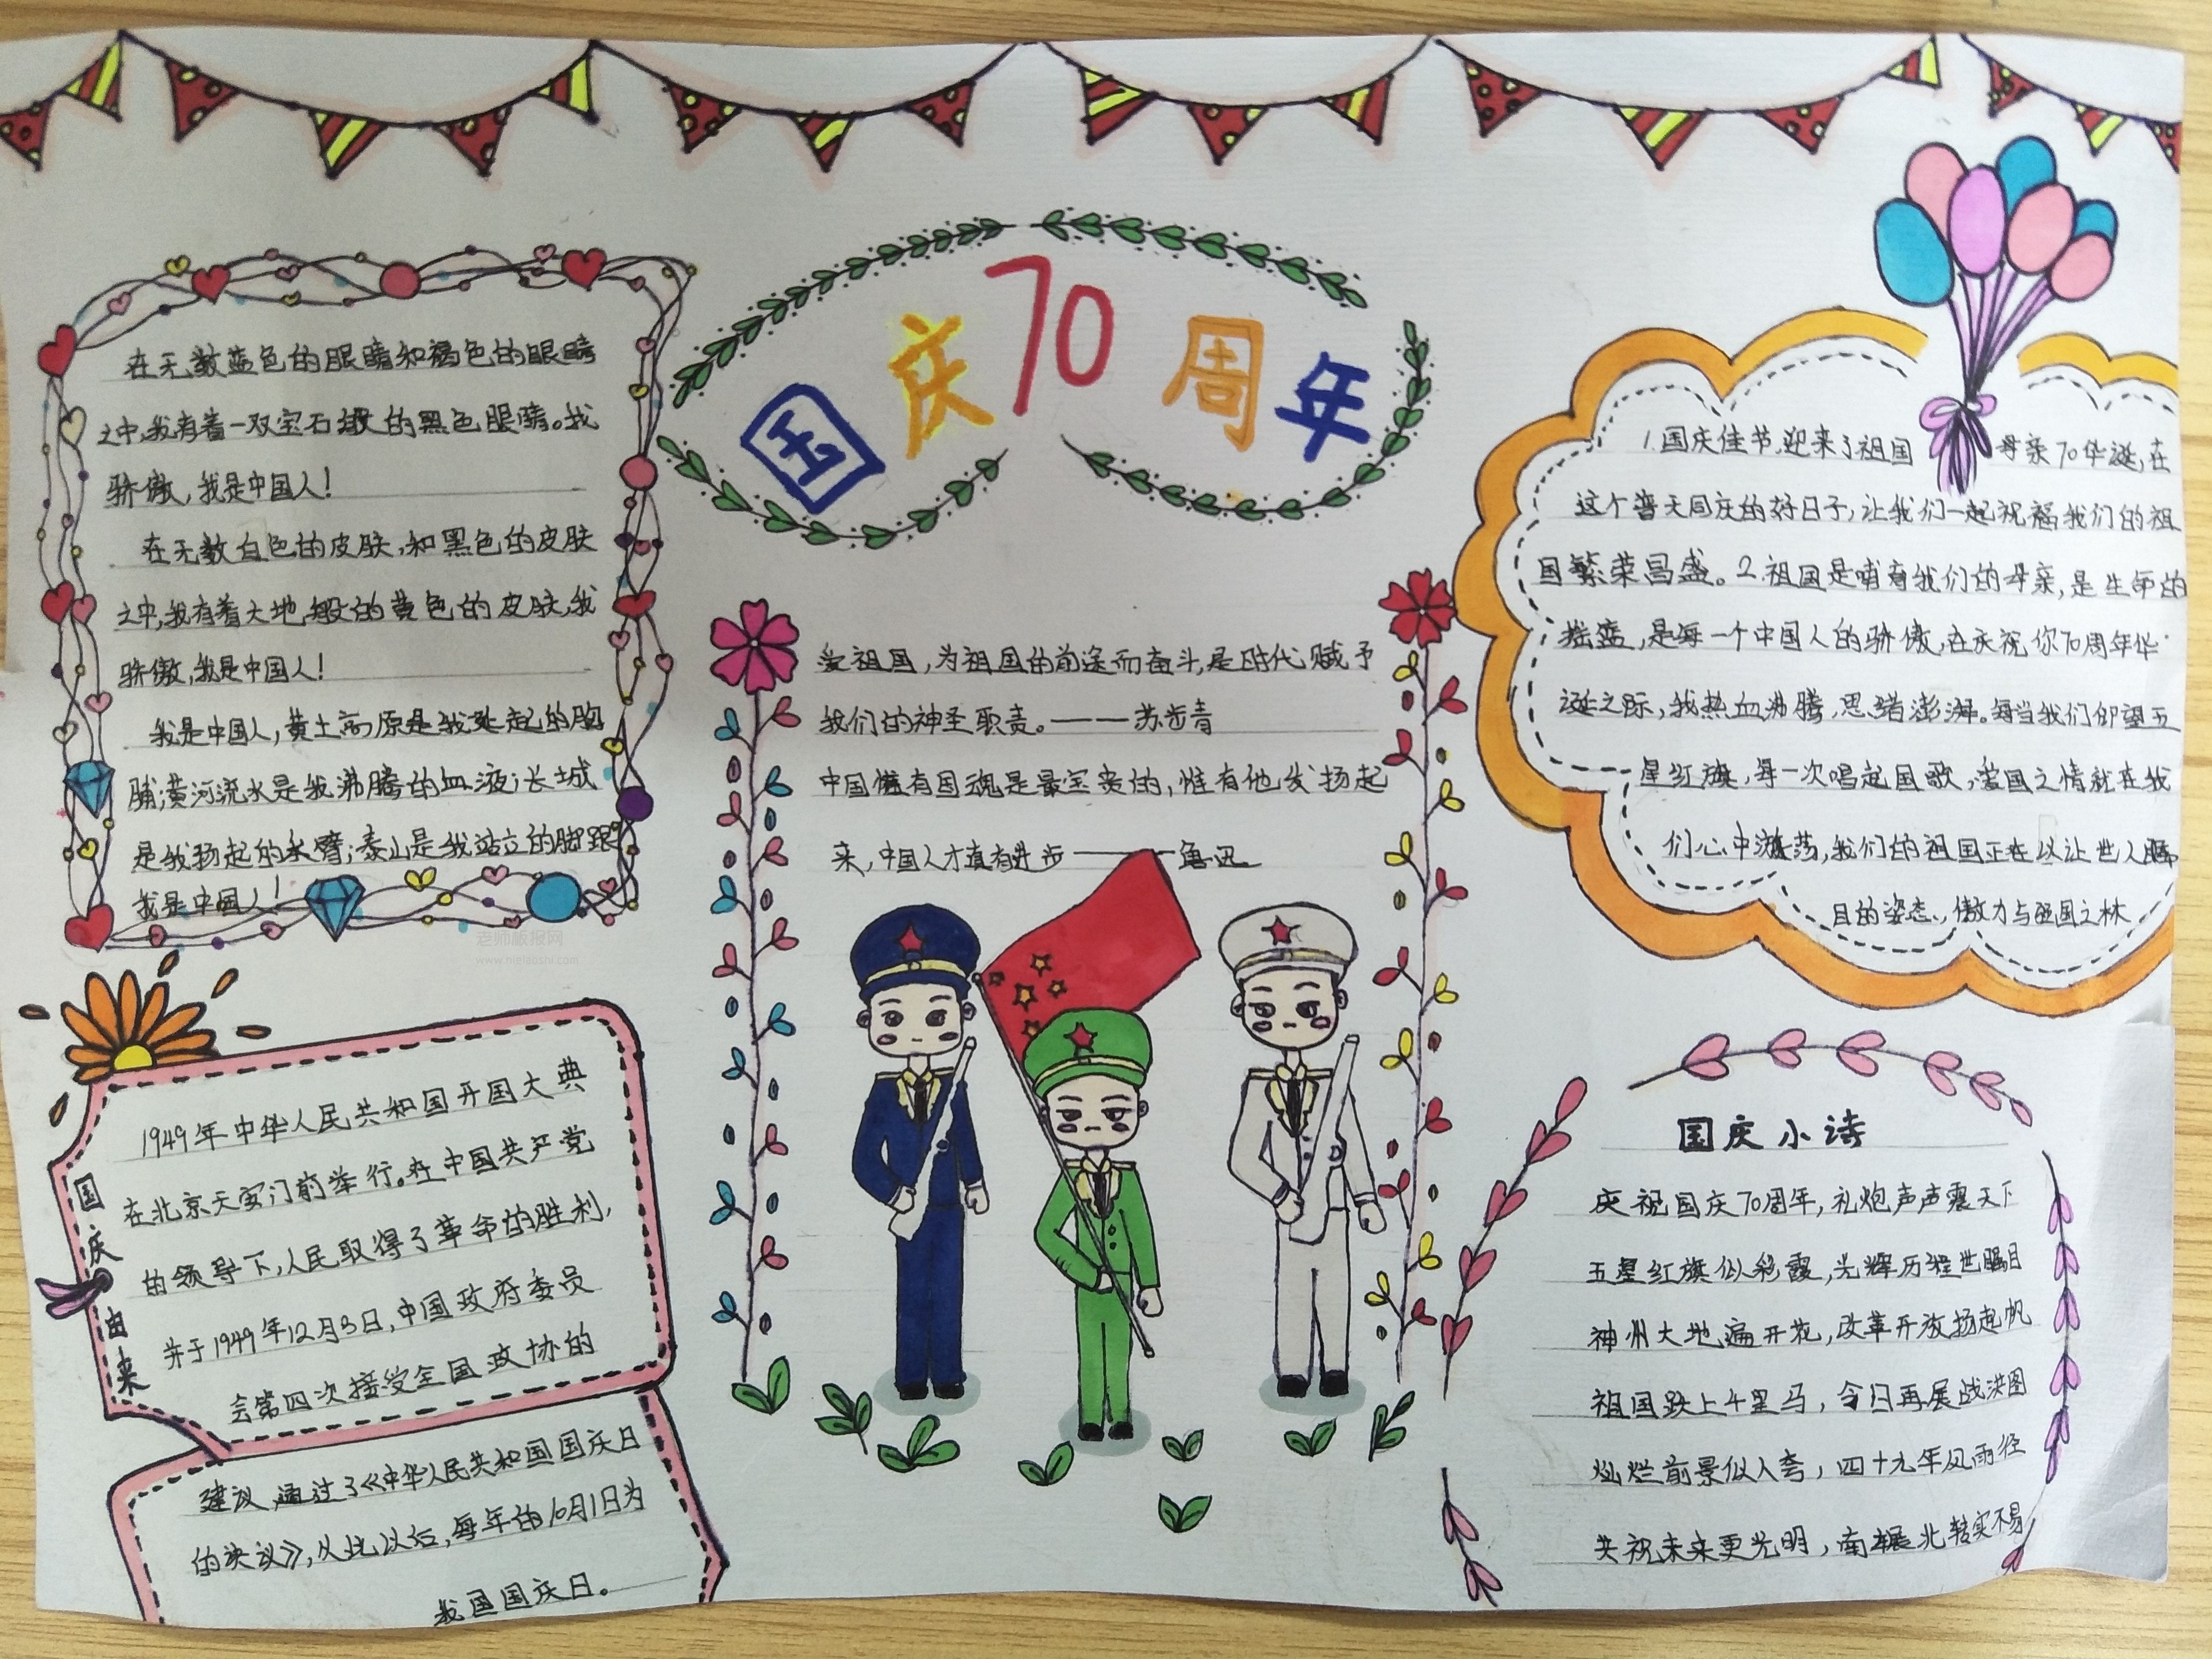 国庆70周年
在无数蓝色的眼睛和褐色的眼睛
之中,我有着一双宝石般的黑色眼睛。我
骄傲,我是中国人!
在无数白色的皮肤,和黑色的皮肤
之中,我有着大地般的黄色的皮肤,我
骄傲,我是中国人!
我是中国人,黄土高原是我挺起的胸
脯;黄河流水是我沸腾的血液;长城
是我扬起的手臂;泰山是我站立的脚跟
我是中国人!
老师板报网
国庆由来
1949年中华人民共和国开国大典
在北京天安门前举行。在中国共产党
的领导下,人民取得了革命的胜利,
并于1949年12月3日,中国政府委员
会第四次接受全国政协的
建议,通过了《中华人民共和国国庆日
的决议》,从此以后,每年的10月1日为
我国国庆日。
爱祖国,为祖国的前途而奋斗,是时代赋予
我们的神圣职责。——苏步青
中国惟有国魂是最宝贵的,惟有他发扬起
来,中国人才真有进步——鲁迅
1.国庆佳节,迎来了祖国母亲70华诞,在
这个普天同庆的好日子,让我们一起祝福我们的祖
国繁荣昌盛。2.祖国是哺育我们的母亲,是生命的
摇篮,是每一个中国人的骄傲,在庆祝你70周年华
诞之际,我热血沸腾,思绪澎湃。每当我们仰望五
星红旗,每一次唱起国歌,爱国之情就在我
们心中激荡,我们的祖国正在以让世人瞩
目的姿态,傲力与强国之林
国庆小诗
庆祝国庆70周年,礼炮声声震天下
五星红旗似彩霞,光辉历程世瞩目
神州大地遍开花,改革开放扬起帆
祖国跃上千里马,今日再展战洪图
灿烂前景似入夸,四十九年风雨径
共祝未来更光明,南辗北转实不易